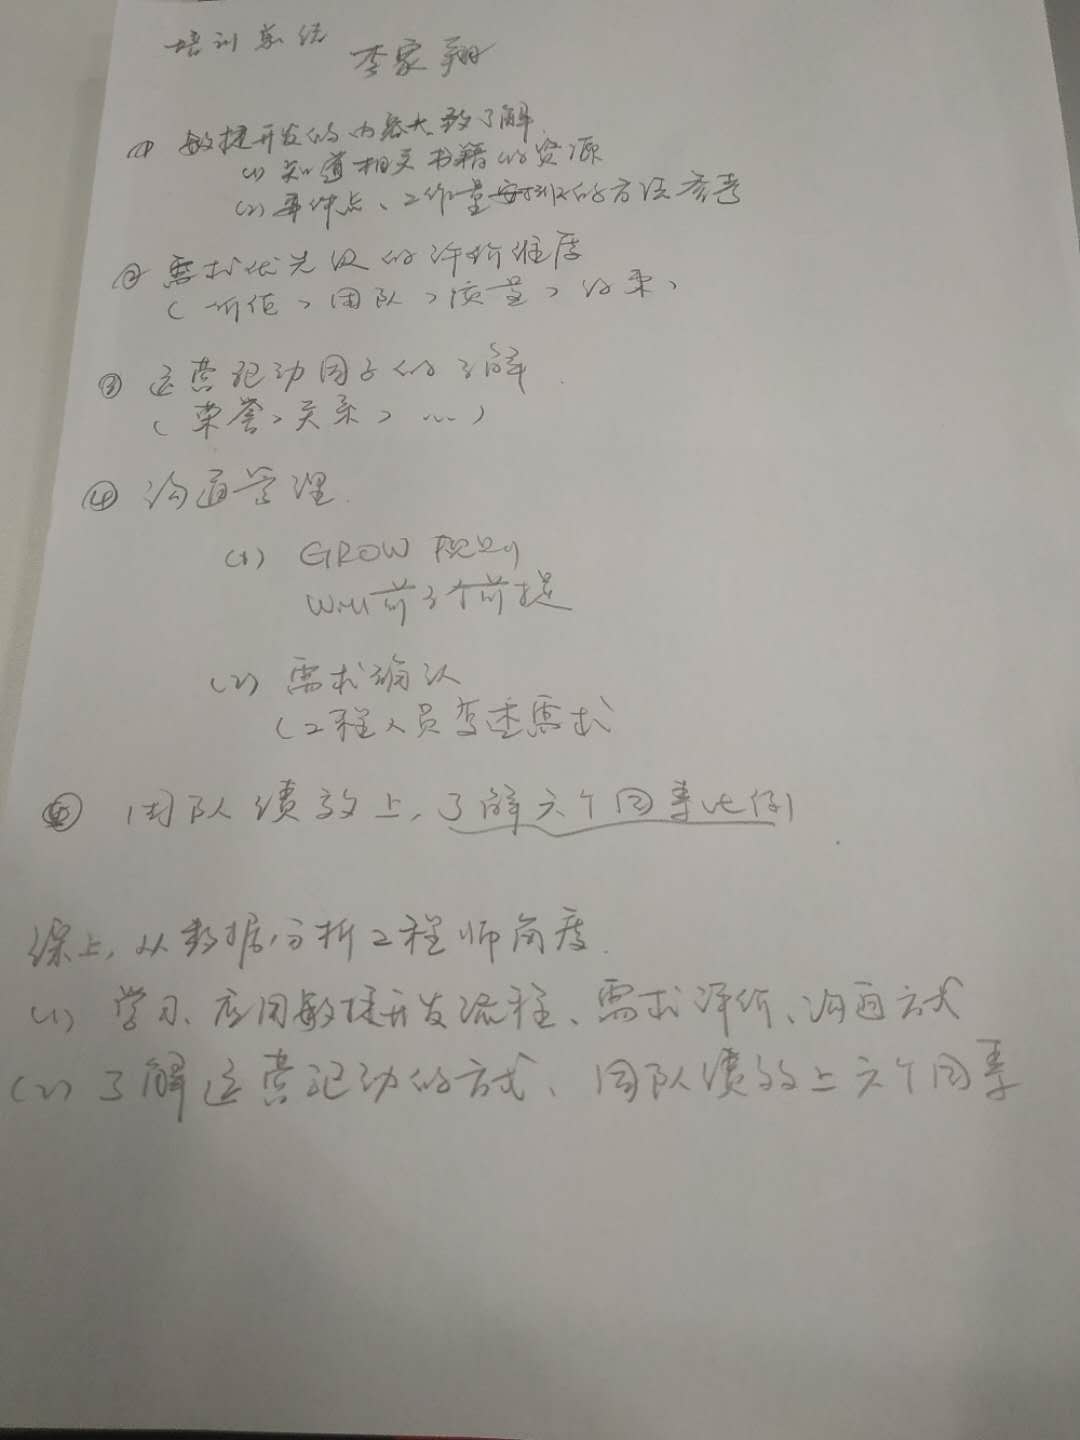 培训总结 李家翔
① 敏捷开发的内容大致了解
(1) 知道相关书籍的资源
(2) 事件点、工作量安排的方法参考
② 需求优先级的评价维度
(价值、团队、质量、效果、
③ 运营驱动因子的了解
(荣誉、关系、…)
④ 沟通管理
(1) GROW 规则
Will前3个前提
(2) 需求确认
(工程人员复述需求
⑤ 团队绩效上,了解六个因素比例
综上,从数据分析工程师角度
(1) 学习、应用敏捷开发流程、需求评价、沟通方式
(2) 了解运营驱动的方式、团队绩效上六个因素